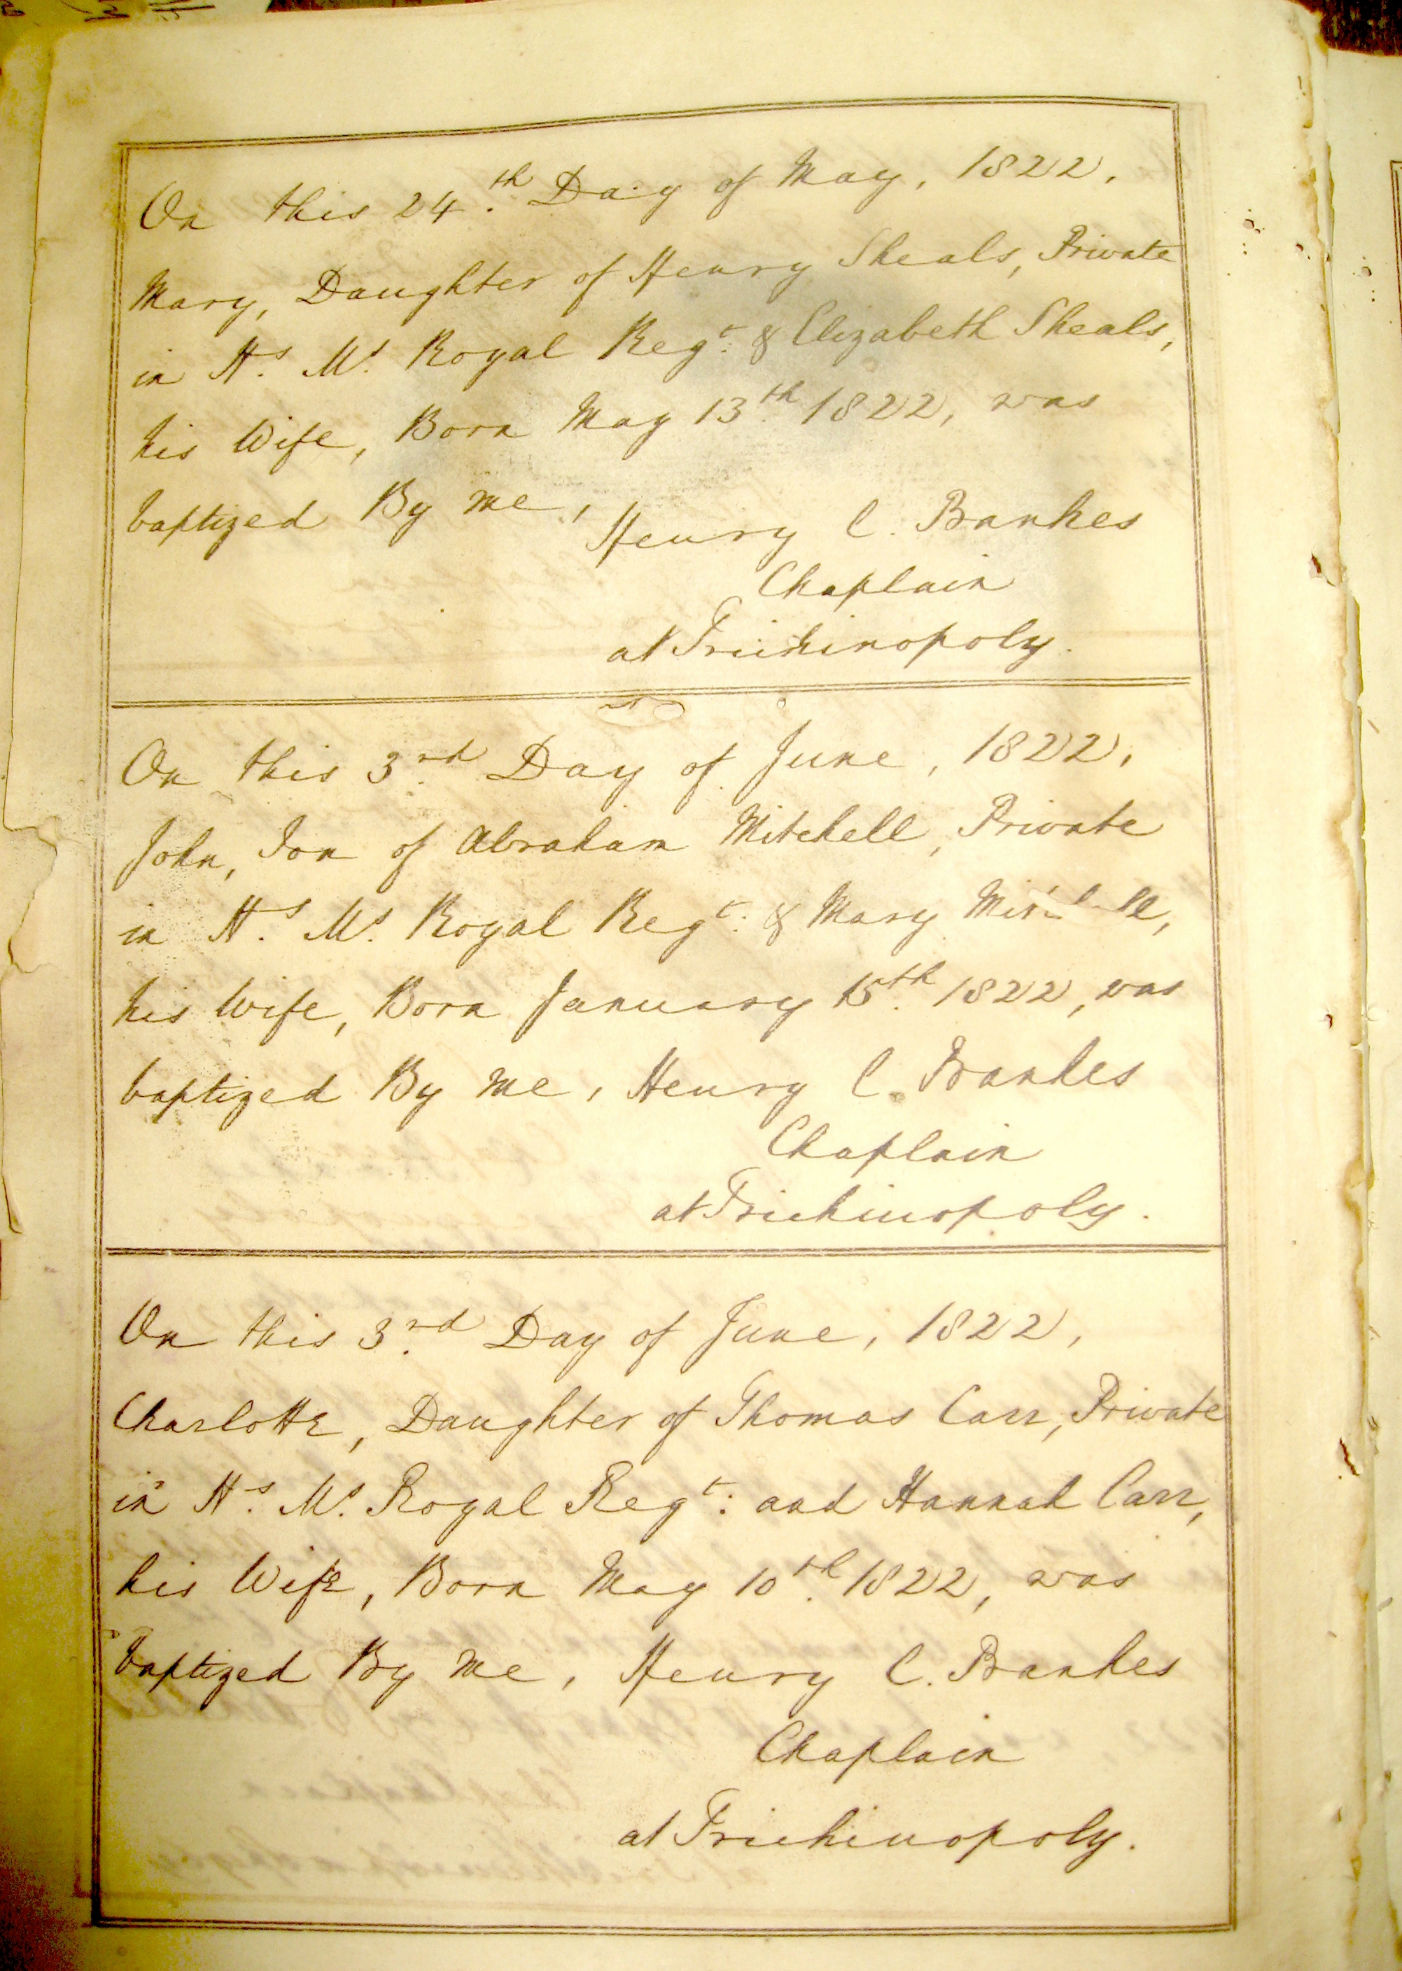 On this 24th Day of May, 1822,
Mary, Daughter of Henry Sheals, Private
in Hs. Ms. Royal Regt. & Elizabeth Sheals,
his Wife, Born May 13th 1822, was
baptized By me,
Henry C. Bankes
Chaplain
at Trichinopoly.
On this 3rd Day of June, 1822,
John, Son of Abraham Mitchell, Private
in Hs. Ms. Royal Regt. & Mary
his Wife, Born January 15th 1822, was
baptized By me, Henry C. Bankes
Chaplain
at Trichinopoly.
On this 3rd Day of June, 1822,
Charlotte, Daughter of Thomas Carr, Private
in Hs. Ms. Royal Regt. and Hannah Carr,
his Wife, Born May 10th 1822, was
baptized By me, Henry C. Bankes
Chaplain
at Trichinopoly.